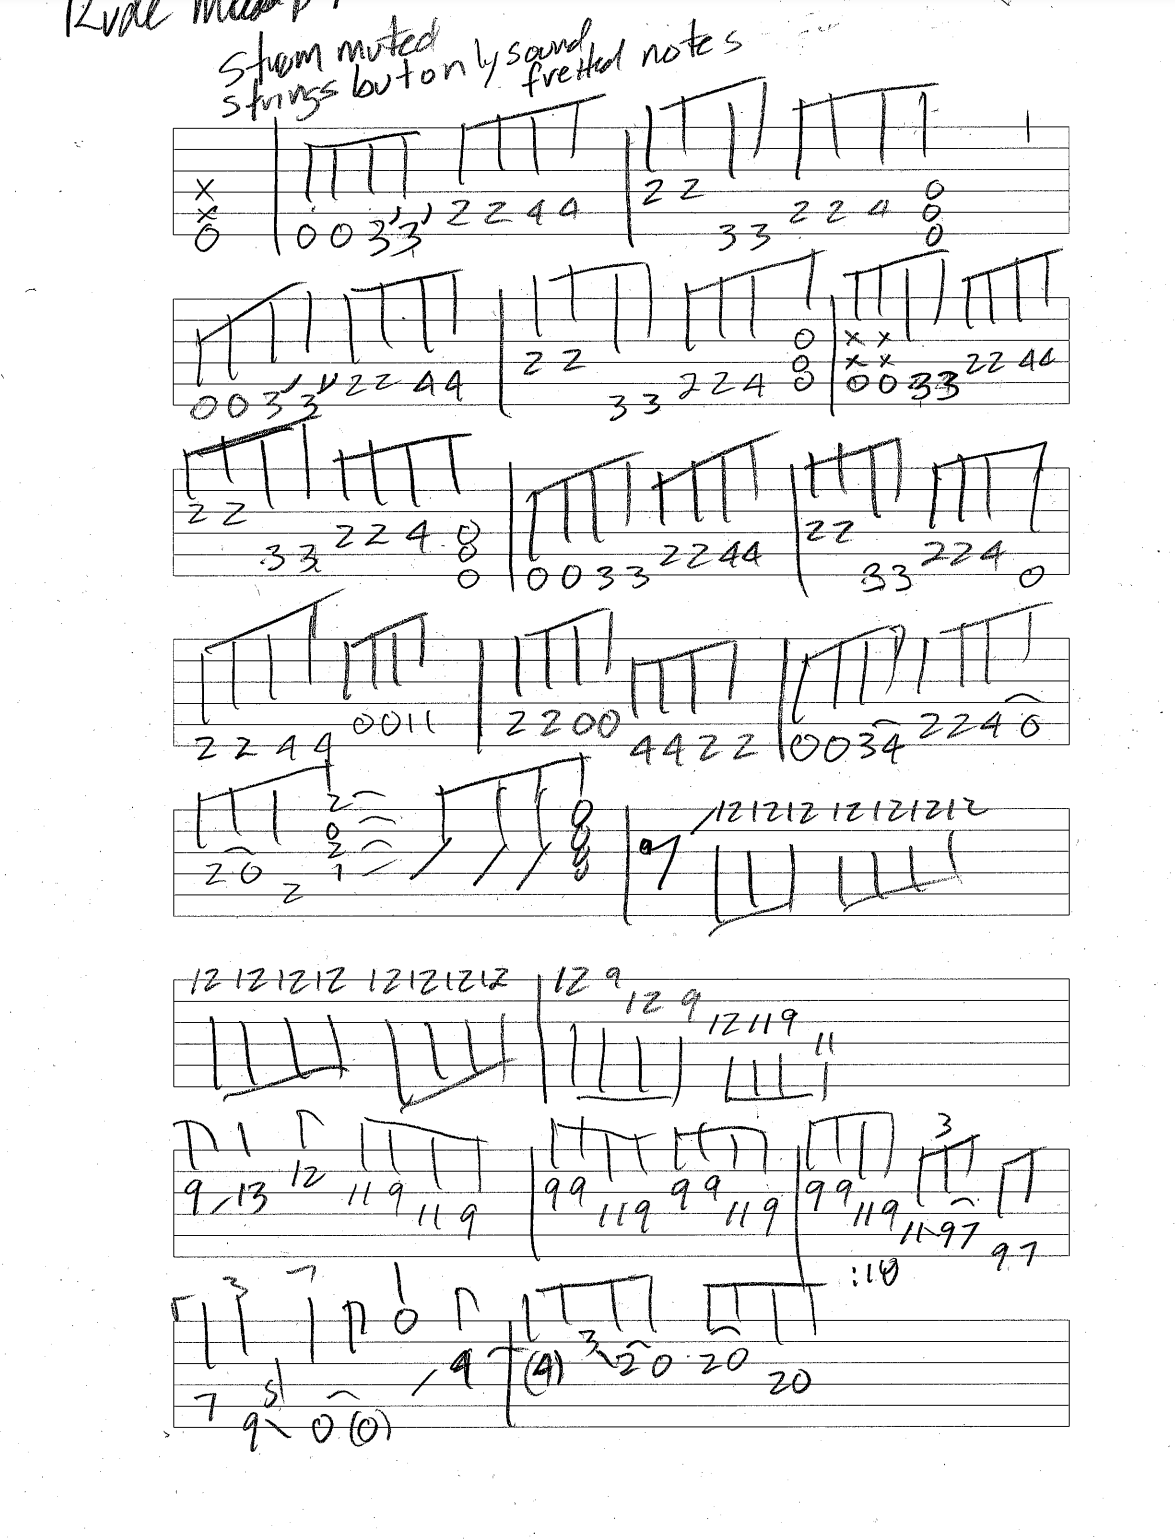 Rude Mood
Strum muted
strings but only sound
fretted notes
x
x
0 0 0 3 3 2 2 4 4 2 2 3 3 2 2 4 0
0
0
0 0 3 3 2 2 4 4 2 2 3 3 2 2 4 0 x x 2 2 4 4
0 x x
0 0 0 3 3
2 2 3 3 2 2 4 0 0 0 3 3 2 2 4 4 2 2 3 3 2 2 4 0
0
0
2 2 4 4 0 0 1 1 2 2 0 0 4 4 2 2 0 0 3 4 2 2 4 0
2 0 2 2 0 12 12 12 12 12 12 12
0 0
2 0
1 0
12 12 12 12 12 12 12 12 12 9 12 9 12 11 9 11
9 13 12 11 9 11 9 9 9 11 9 9 9 11 9 9 9 11 9 3 11 9 7 9 7
:10
3 7 9 sl 0 (0) 0 4 (4) 3 2 0 2 0 2 0